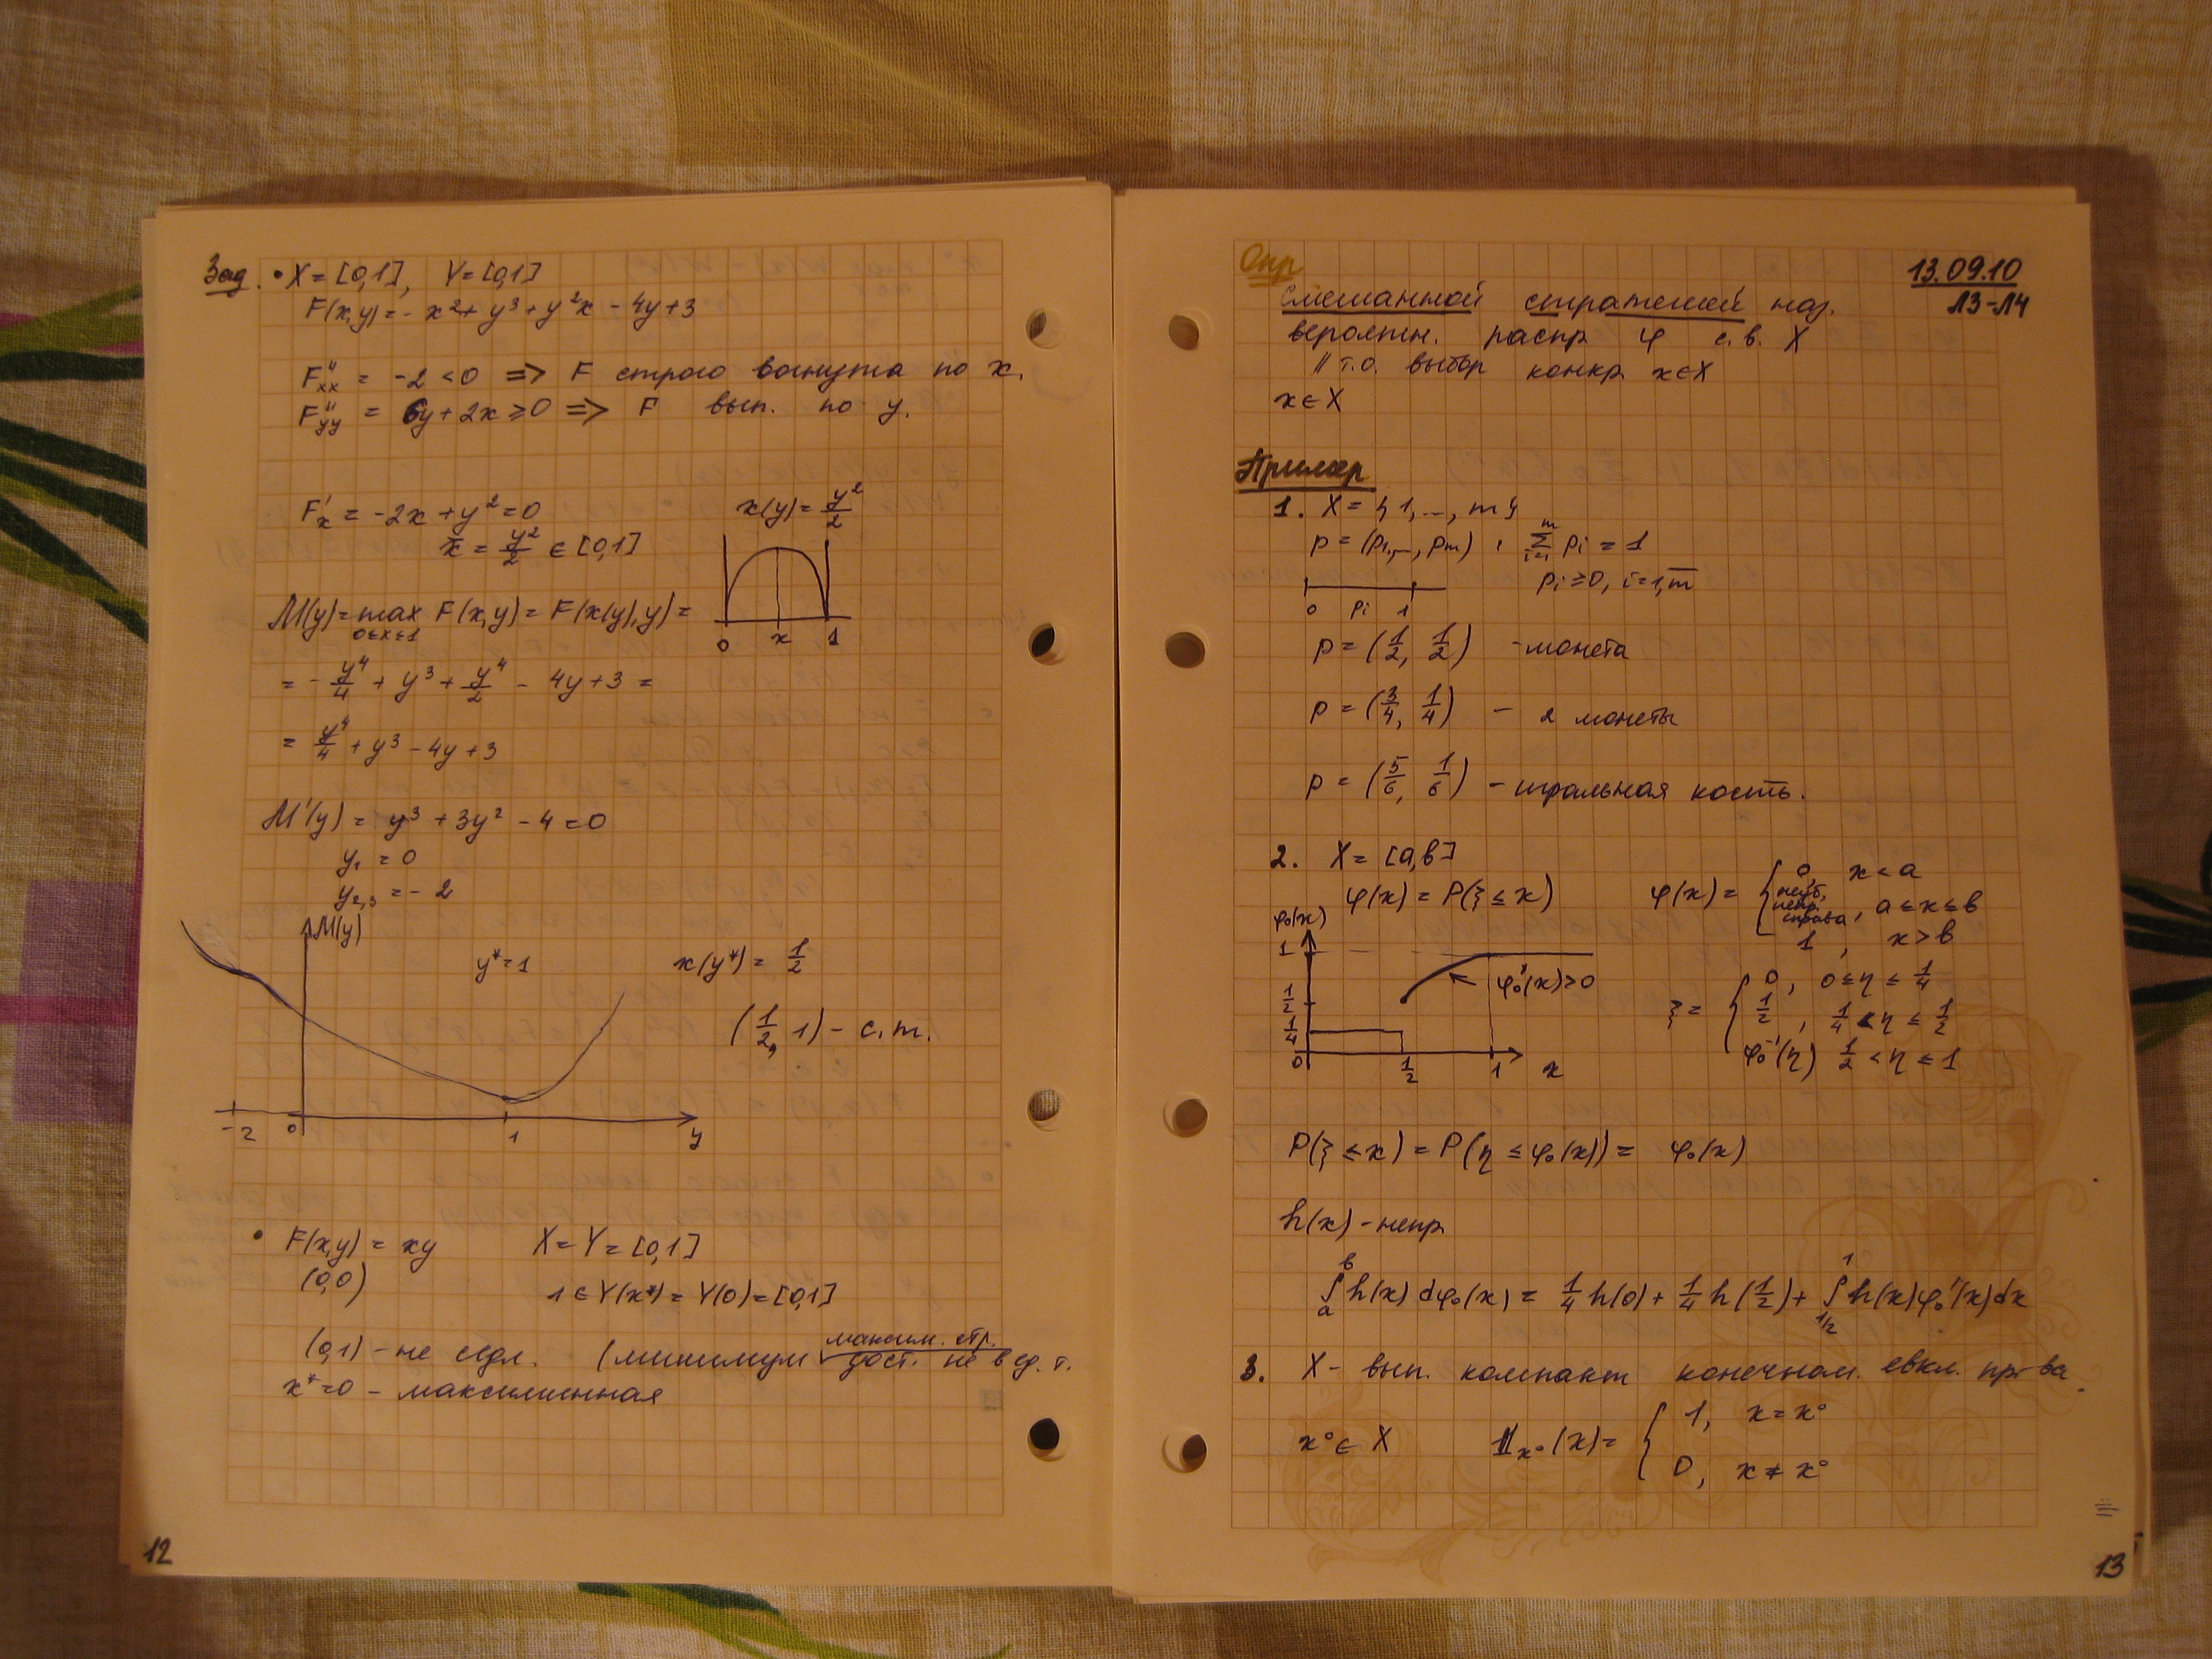 Зад. • X = [0,1], Y = [0,1]
F(x,y) = - x² + y³ + y²x - 4y + 3
F''xx = -2 < 0 => F строго вогнута по x.
F''yy = 6y + 2x ≥ 0 => F вып. по y.
F'x = -2x + y² = 0
x(y) = y²/2
x = y²/2 ∈ [0,1]
0 x 1
M(y) = max F(x,y) = F(x(y),y) =
0≤x≤1
= - y⁴/4 + y³ + y⁴/2 - 4y + 3 =
= y⁴/4 + y³ - 4y + 3
M'(y) = y³ + 3y² - 4 = 0
y₁ = 0
y₂,₃ = - 2
M(y)
y* = 1 x(y*) = 1/2
(1/2, 1) - с.т.
-2 0 1 y
• F(x,y) = xy X = Y = [0,1]
(0,0) 1 ∈ Y(x*) = Y(0) = [0,1]
(0,1) - не седл. (минимум максим. стр. дост. не в с.т.
x* = 0 - максиминная
12
Опр 13.09.10
Л3-Л4
Смешанной стратегией наз.
вероятн. распр φ с.в. X
// т.о. выбор конкр. x∈X
x ∈ X
Пример
1. X = {1, ..., m}
p = (p₁,..., pm) : m∑i=1 pi = 1
pi ≥ 0, i = 1,m̅
0 pi 1
p = (1/2, 1/2) - монета
p = (3/4, 1/4) - 2 монеты
p = (5/6, 1/6) - игральная кость.
2. X = [a,b]
φ(x) = P(ξ ≤ x) φ(x) = { 0, x < a
непр. справа, a ≤ x ≤ b
1, x > b
φ₀(x)
1
1/2
1/4
0 1/2 1 x
φ₀'(x) > 0
ξ = { 0, 0 ≤ η ≤ 1/4
1/2, 1/4 < η ≤ 1/2
φ₀⁻¹(η) 1/2 < η ≤ 1
P(ξ ≤ x) = P(η ≤ φ₀(x)) = φ₀(x)
h(x) - непр
b∫a h(x) dφ₀(x) = 1/4 h(0) + 1/4 h(1/2) + 1∫1/2 h(x) φ₀'(x) dx
3. X - вып. компакт конечном. евкл. пр-ва.
x° ∈ X 𝟙x°(x) = { 1, x = x°
0, x ≠ x°
13